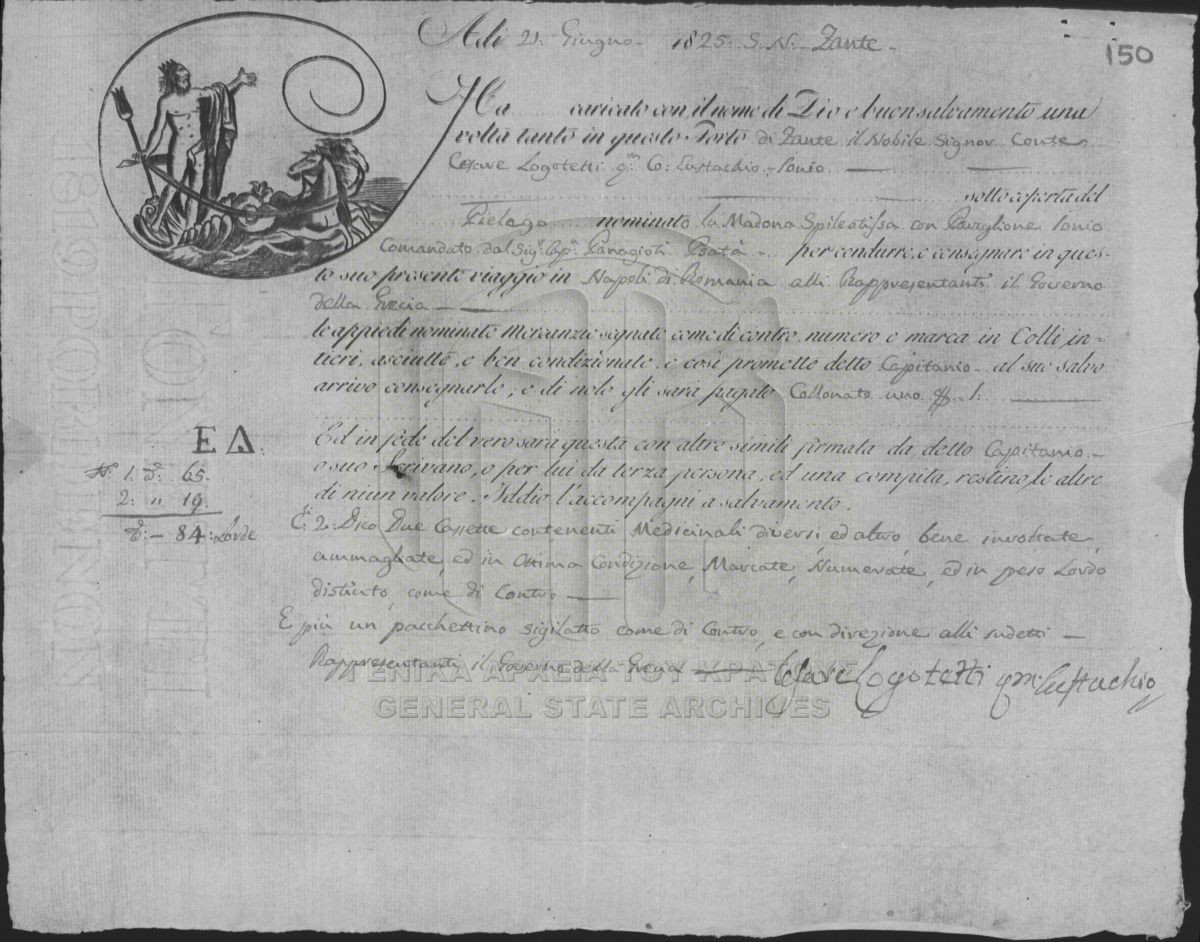 Adi 21: Giugno - 1825: S. N. - Zante -
150
Ha caricato con il nome di Dio e buon salvamento una
volta tanto in questo Porto di Zante il Nobile Signor Conte
Cesare Logotetti qm Co: Eustachio - Ionio
sotto coperta del
Pielago nominato la Madona Spileotissa con Paviglione Ionio
Comandato dal Sigr. Capn. Panagioti Psatà - per condurre, e consegnare in ques-
to suo presente viaggio in Napoli di Romania alli Rappresentanti il Governo
della Grecia
le appiedi nominate Mercanzie segnate come di contro, numero e marca in Colli in-
tieri, asciutte, e ben condizionate, e così promette detto Capitanio - al suo salvo
arrivo consegnarle; e di nolo gli sarà pagato Collonato uno 1:
ΕΔ.
Ed in fede del vero sarà questa con altre simili firmata da detto Capitanio -
No. 1: 65.
o suo Scrivano, o per lui da terza persona, ed una compita, restino le altre
2: " 19.
di niun valore. Iddio l'accompagni a salvamento.
- 84: Lorde
C. 2: Dico Due Cassette contenenti Medicinali diversi, ed altro, bene involtate,
ammagliate, ed in Ottima Condizione, Marcate, Numerate, ed in peso Lordo
distinto, come di Contro
E più un pacchettino sigilatto come di Contro, e con direzione alli sudetti -
Rappresentanti il Governo della Grecia
Cesare Logotetti qm Eustachio
ΓΕΝΙΚΑ ΑΡΧΕΙΑ ΤΟΥ ΚΡΑΤΟΥΣ
GENERAL STATE ARCHIVES